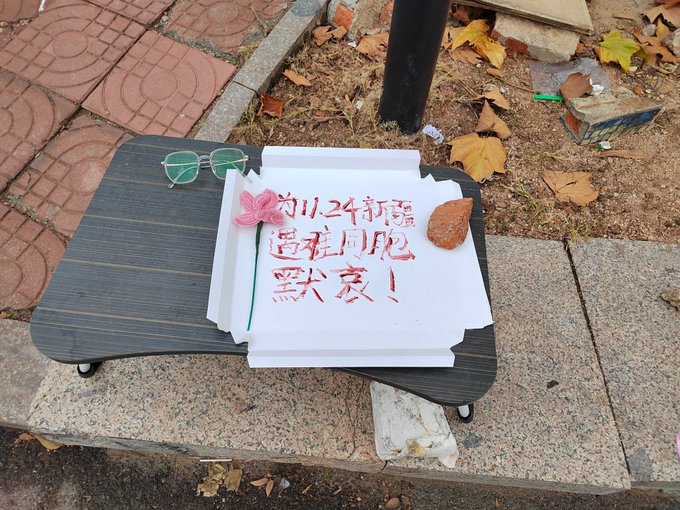 为11.24新疆
遇难同胞
默哀！